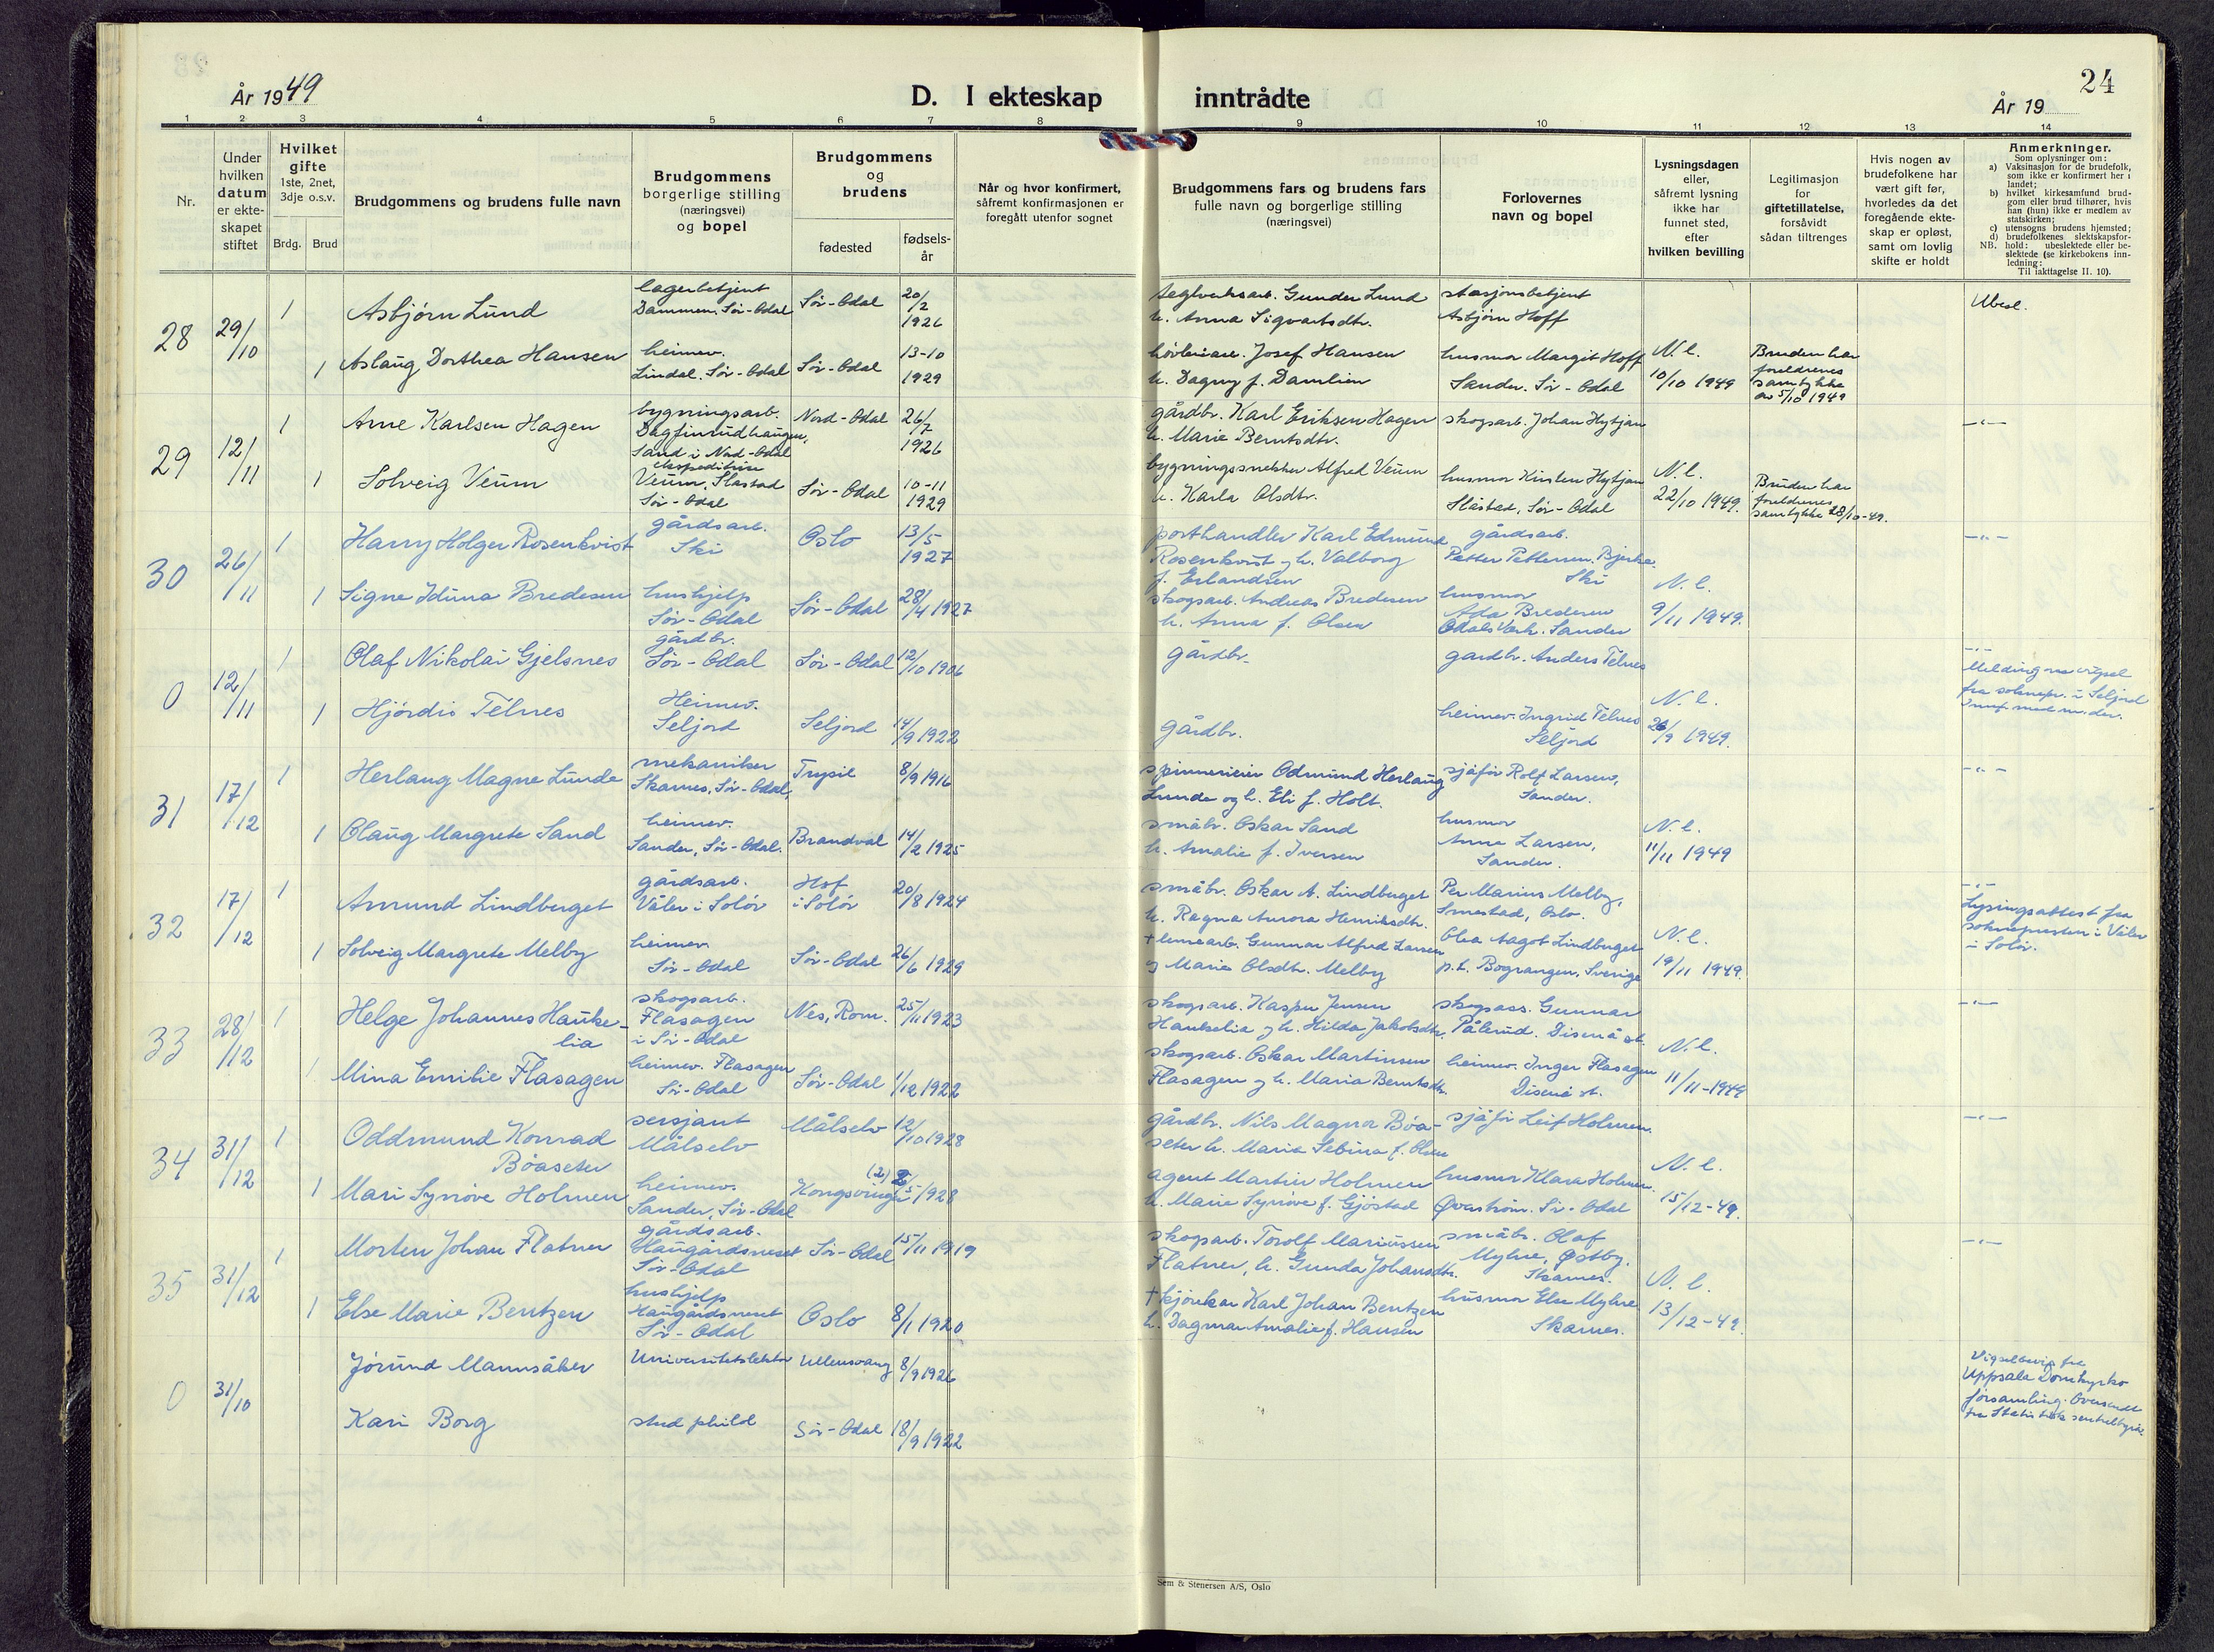 24
År 1949
D. I ekteskap inntrådte
År 19
1 2 3 4 5 6 7 8 9 10 11 12 13 14
Nr.
Under hvilken datum er ekteskapet stiftet
Hvilket gifte 1ste, 2net, 3dje o.s.v.
Brdg. Brud
Brudgommens og brudens fulle navn
Brudgommens borgerlige stilling (næringsvei) og bopel
Brudgommens og brudens
fødested
fødsels-år
Når og hvor konfirmert, såfremt konfirmasjonen er foregått utenfor sognet
Brudgommens fars og brudens fars fulle navn og borgerlige stilling (næringsvei)
Forlovernes navn og bopel
Lysningsdagen eller, såfremt lysning ikke har funnet sted, efter hvilken bevilling
Legitimasjon for giftetillatelse, forsåvidt sådan tiltrenges
Hvis nogen av brudefolkene har vært gift før, hvorledes da det foregående ekteskap er opløst, samt om lovlig skifte er holdt
Anmerkninger.
Som oplysninger om:
a) Vaksinasjon for de brudefolk, som ikke er konfirmert her i landet;
b) hvilket kirkesamfund brudgom eller brud tilhører, hvis han (hun) ikke er medlem av statskirken;
c) utensogns brudens hjemsted;
d) brudefolkenes slektskapsforhold: ubeslektede eller beslektede (se kirkebokens innledning:
NB.
Til iakttagelse II. 10).
28 29/10 1 Asbjørn Lund lagerbetjent Dammen, Sør-Odal Sør-Odal 20/2 1926 teglverksarb. Gunder Lund h. Anna Sigvartsdtr. stasjonsbetjent Asbjørn Hoff Ubesl.
1 Aslaug Dorthea Hansen heimev. Lindal. Sør-Odal Sør-Odal 13-10 1929 Josef Hansen h. Dagny f. Damlien husmor Margit Hoff Sander. Sør-Odal N.l. 10/10 1949 Bruden har foreldrenes samtykke av 5/10 1949
29 12/11 1 Arne Karlsen Hagen bygningsarb. Dagfinrudhaugen, Sand i Nord-Odal Nord-Odal 26/7 1926 gårdbr. Karl Eriksen Hagen h. Marie Berntsdtr. skogsarb. Johan Hytjan -"-
1 Solveig Veum ekspeditrise Veum, Slåstad Sør-Odal Sør-Odal 10-11 1929 bygningssnekker Alfred Veum h. Karla Olsdtr. husmor Kirsten Hytjan Slåstad, Sør-Odal N.l. 22/10 1949. Bruden har foreldrenes samtykke 28/10-49.
30 26/11 1 Harry Holger Rosenkvist gårdsarb. Ski Oslo 13/5 1927 Karl Edmund Rosenkvist og h. Valborg f. Erlandsen gårdsarb. Petter Pettersen. Bjerke. Ski -"-
1 Signe Iduna Bredesen hushjelp Sør-Odal Sør-Odal 28/4 1927 skogsarb. Andreas Bredesen h. Anna f. Olsen husmor Ada Bredesen Odals Verk. Sander N.l. 9/11 1949.
0 12/11 1 Olaf Nikolai Gjelsnes gårdbr. Sør-Odal Sør-Odal 12/10 1906 gårdbr. gardbr. Anders Telnes -"- Melding om vigsel fra soknepr. i Seljord
1 Hjørdis Telnes Heimev. Seljord Seljord 14/9 1922 gårdbr. heimev. Ingrid Telnes Seljord N.l. 26/9 1949.
31 17/12 1 Herlaug Magne Lunde mekaniker Skarnes, Sør-Odal, Trysil 8/9 1916 spinnerieier Odmund Herlaug Lunde og h. Eli f. Holt. sjåfør Rolf Larsen, Sander. -"-
1 Olaug Margrete Sand heimev. Sander, Sør-Odal. Brandval 14/2 1925 småbr. Oskar Sand h. Amalie f. Iversen husmor Anna Larsen, Sander. N.l. 11/11 1949
32 17/12 1 Amund Lindberget gårdsarb. Våler i Solør Hof i Solør 20/8 1924 småbr. Oskar A. Lindberget h. Ragna Aurora Henriksdtr. Per Marius Melby, Smestad, Oslo. -"- Lysingsattest fra soknepresten i Våler i Solør.
1 Solveig Margrete Melby heimev. Sør-Odal Sør-Odal 26/6 1929 + Gunnar Alfred Larsen og Marie Olsdtr. Melby Olea Aagot Lindberget p.t. Bograngen, Sverige N.l. 19/11 1949.
33 28/12 1 Helge Johannes Haukelia skogsarb. Flasagen i Sør-Odal Nes, Rom. 25/11 1923 skogsarb. Kasper Jensen Haukelia og h. Hilda Jakobsdtr. skogsass. Gunnar Pålerud. Disenå st. -"-
1 Mina Emilie Flasagen heimev. Flasagen Sør-Odal Sør-Odal 1/12 1922 skogsarb. Oskar Martinsen Flasagen og h. Maria Berntsdtr. heimev. Inger Flasagen Disenå st. N.l. 11/11-1949
34 31/12 1 Oddmund Konrad Bøaseter sersjant Målselv Målselv 12/10 1928 gårdbr. Nils Magnor Bøaseter h. Maria Sebina f. Olsen sjåfør Leif Holmen. -"-
1 Mari Synnøve Holmen heimev. Sander, Sør-Odal Kongsvinger (2) 2/5 1928 agent Martin Holmen h. Marie Synnøve f. Gjøstad husmor Klara Holmen. Øverstrøm. Sør-Odal N.l. 15/12-49.
35 31/12 1 Morten Johan Flatner gårdsarb. Haugårdsneset Sør-Odal Sør-Odal 15/11 1919 skogsarb. Torolf Mariussen Flatner, h. Gunda Johansdtr. småbr. Olaf Myhre, Østby. Skarnes. -"-
1 Else Marie Bentzen hushjelp Haugårdsneset Sør-Odal Oslo 8/1 1920 + kjørekar Karl Johan Bentzen h. Dagmar Amalie f. Hansen husmor Else Myhre Skarnes. N.l. 13/12-49.
0 31/10 Jørund Mannsåker Universitetslektor Ullensvang 8/9 1926 Vigselbevis fra Uppsala Domkyrko församling. Oversendt fra Statistisk sentralbyrå.
Kari Borg stud philol Sør-Odal 18/9 1922
Sem & Stenersen A/S, Oslo